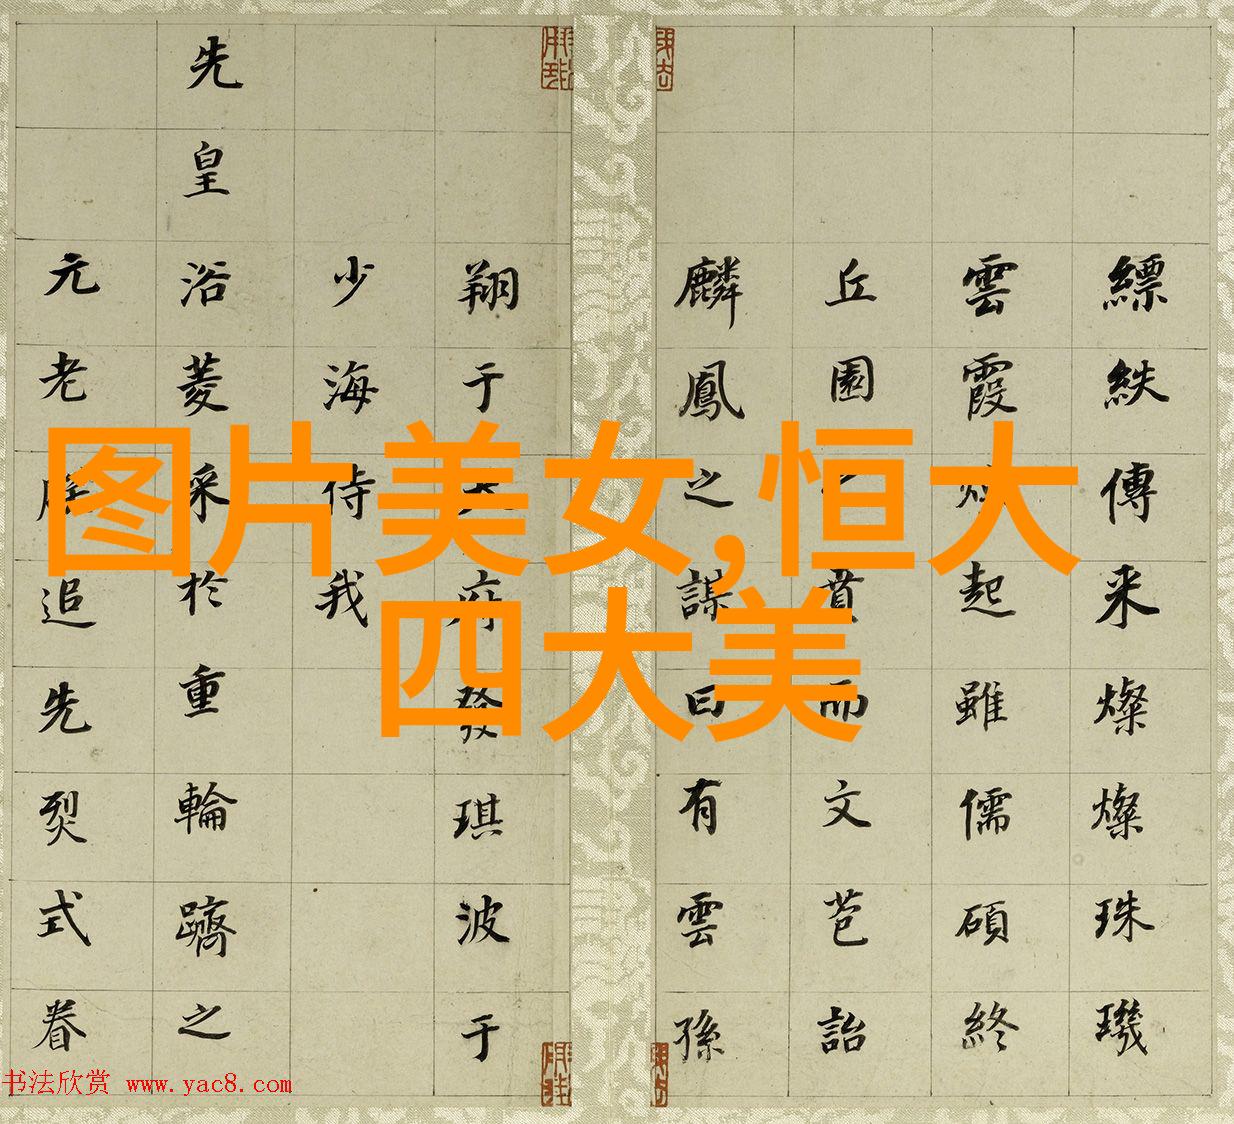 图片美女,恒大
四大美
縹紩傳来燦燦珠璣
雲霞起雖儒碩終
丘園賁而文芑詒
麟鳳之謀曰有雲孫
翔于府發琪波于
少海侍我
先皇浴菱采於重輪躋之
元老追先烈式眷
书法欣赏 www.yac8.com